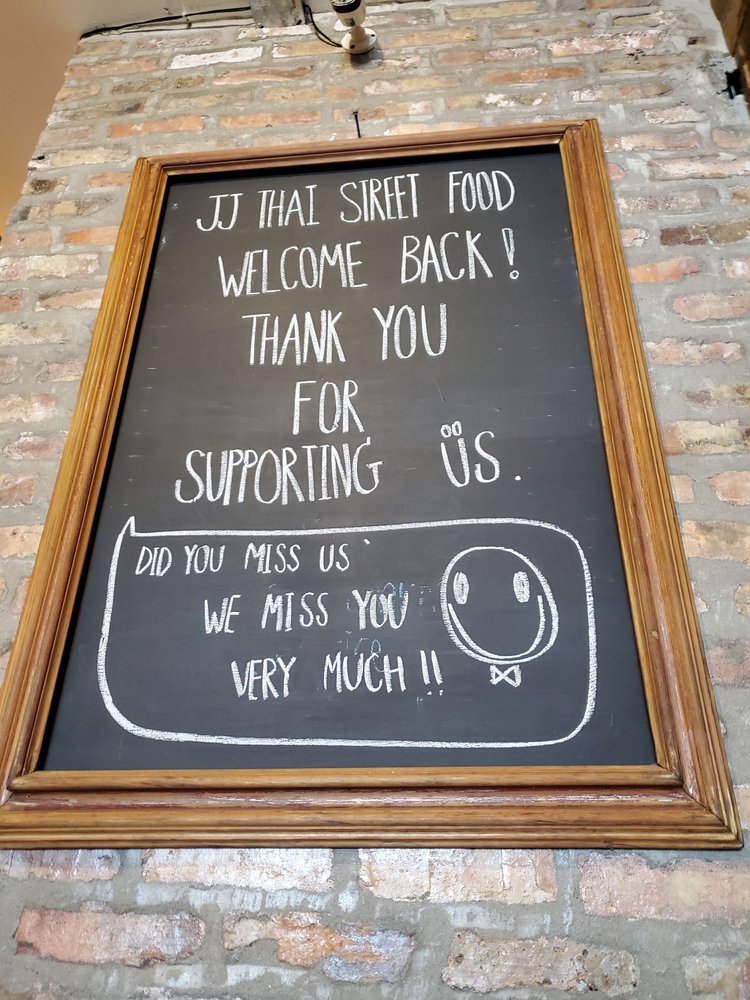 JJ THAI STREET FOOD
WELCOME BACK!
THANK YOU
FOR
SUPPORTING ÜS.
DID YOU MISS US
WE MISS YOU
VERY MUCH!!